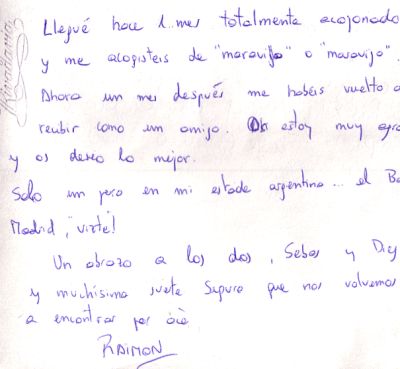 Llegué hace 1 mes totalmente acojonado
y me acogisteis de "maravijo" o "maravijo".
Ahora un mes después me habéis vuelto a
recibir como un amigo. Os estoy muy agra
y os deseo lo mejor.
Solo un pero en mi estade argentina... el Ba
Madrid, ¡viste!
Un abrazo a los dos, Sebas y Diy
y muchísima suete Supure que nos volvamos
a encontrar por
RAIMON